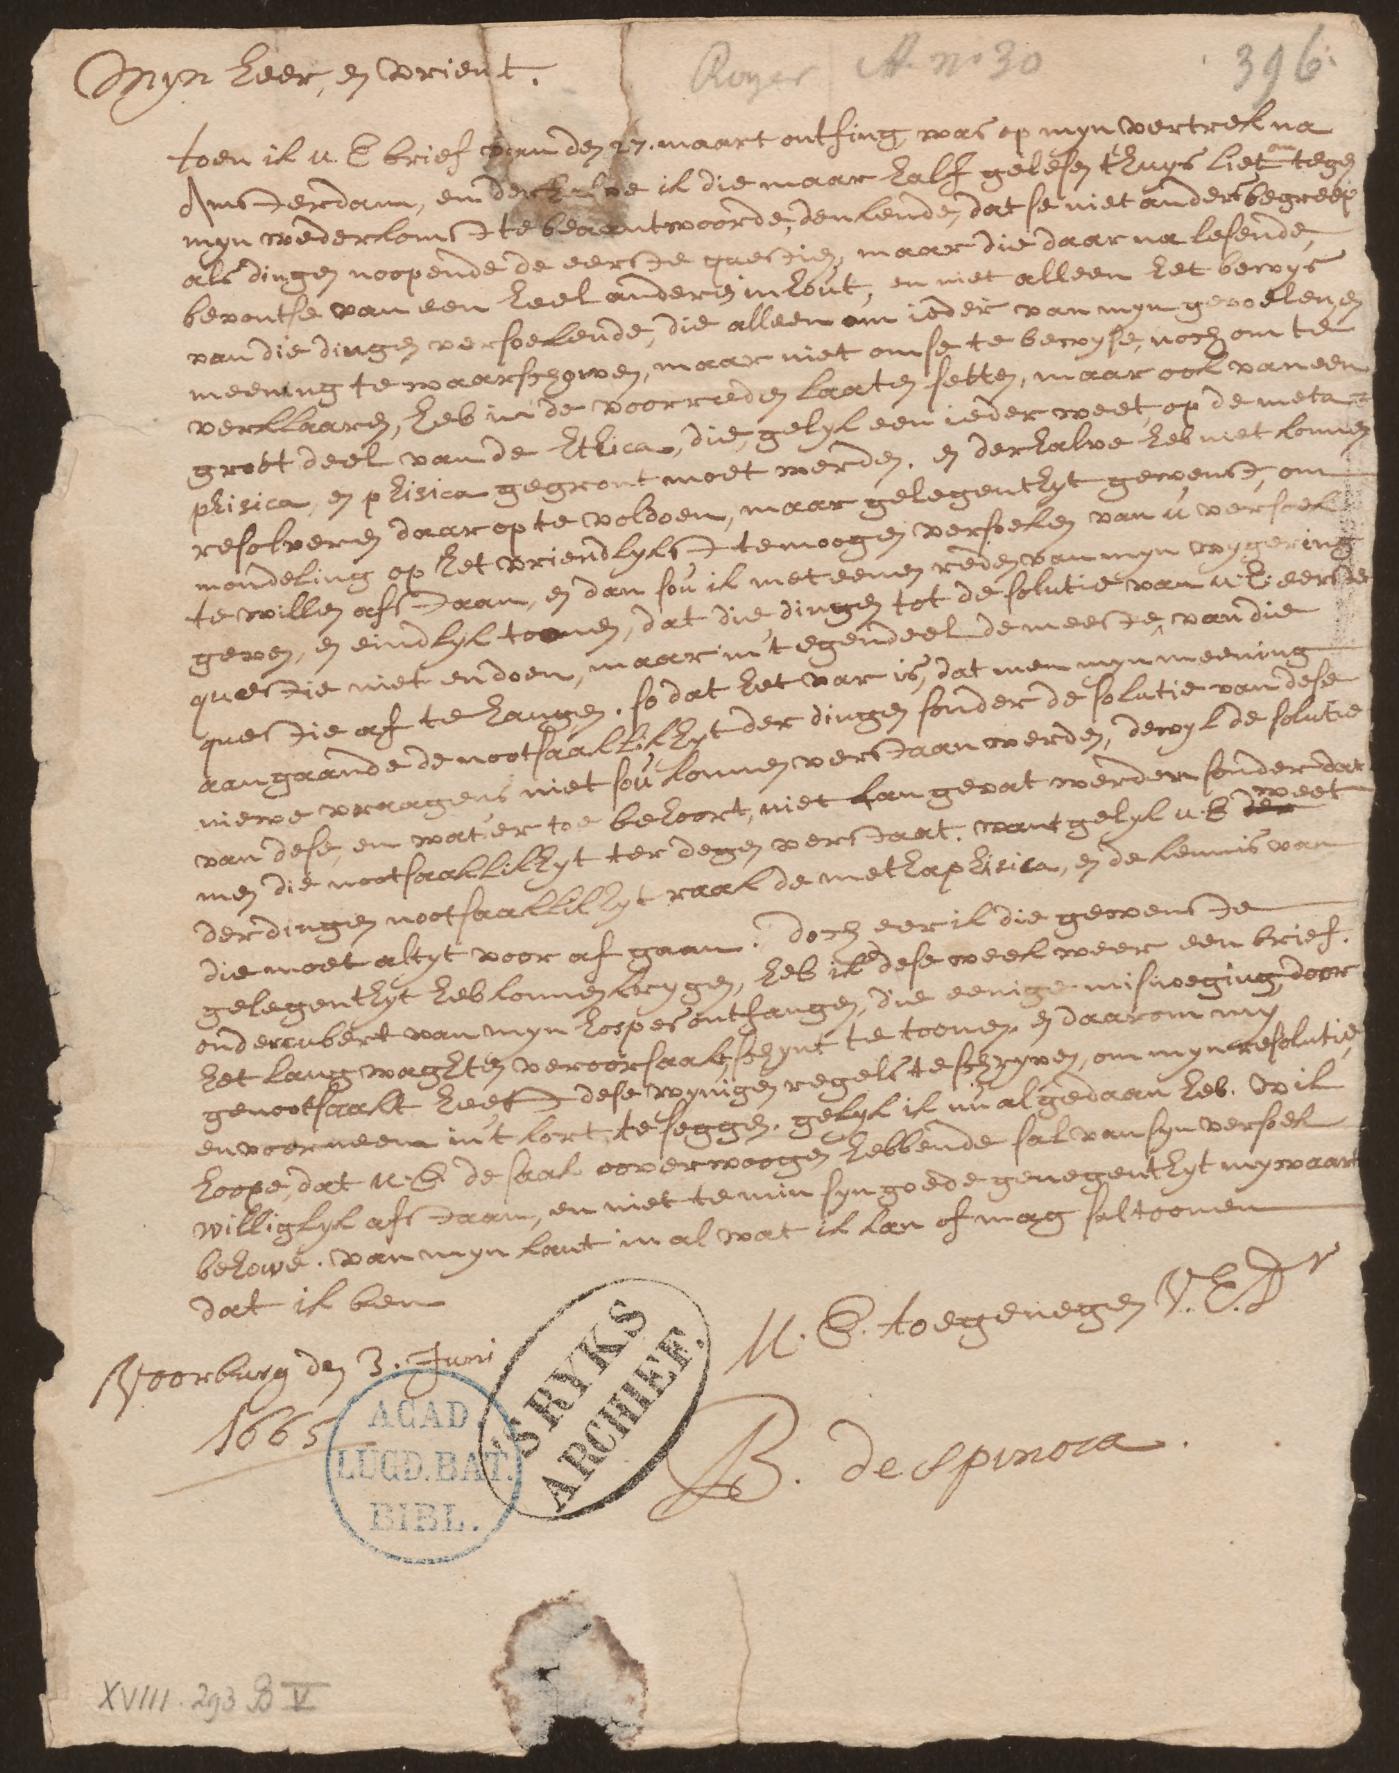 Royer A. no 30
396.
Myn heer, en vrient.
toen ik u. E brief van den 27. maart ontfing, was op myn vertrek na
Amsterdam, en derhalve ik die maar half gelesen t'huys liet om tegen
myn wederkomst te beäantwoorde, denkende, dat se niet anders begreep
als dingen noopende de eerste questien, maar die daar na lesende,
bevont se van een heel anderen inhout, en niet alleen het bewys
van die dingen versoekende, die alleen om ieder van myn gevoelen en
meening te waarschowen, maar niet om se te bewyse, noch om te
verklaaren, heb in de voorreden laaten setten, maar ook van een
groot deel van de Ethica, die, gelyk een ieder weet, op de meta-
phisica, en phisica gegront moet werden. en derhalve heb niet konnen
resolveren daar op te voldoen, maar gelegentheyt gewenst, om
mondeling op het vriendlykst te moogen versoeken van u versoek
te willen afstaan, en dan sou ik met eenen reden van myn wygering
geven, en eindlyk toonen, dat die dingen tot de solutie van u. E. eerste
questie niet en doen, maar in't tegendeel de meeste, van die
questie af te hangen. so dat het var is, dat men myn meening
aangaande de nootsaaklikhyt der dingen sonder de solutie van dese
niewe vraagens niet sou konnen verstaan werden, dewyl de solutie
van dese, en wat'er toe behoort, niet kan gevat werden sonder dat
men die nootsaaklikhyt ter degen verstaat. want gelyk u. E der weet
der dingen nootsaaklikhyt raak de methaphisica, en de kennis van
die moet altyt voor af gaan. doch eer ik die gewenste
gelegenthyt heb konnen krygen, heb ik dese week weer een brief.
onder cubert van myn hospes ontfangen, die eenige misnoeging door
het lang waghten veroorsaakt, schynt te toonen. en daarom my
genootsaakt heeft dese wynigen regels te schryven, om myn resolutie,
en voorneem in't kort te seggen. gelyk ik nu al gedaan heb. Wil
hoope, dat u. E. de saak ooverwoogen hebbende sal van syn versoek
williglyk afstaan, en niet te min syn goede genegenthyt mywaart
behowe. van myn kant in al wat ik kan of mag sal toonen
dat ik ben
U. E. toegenegen V. E. Dr
B. despinoza.
Voorburg den 3. Juni
1665
'S RYKS
ARCHIEF.
ACAD.
LUGD.BAT.
BIBL.
XVIII. 293 B V